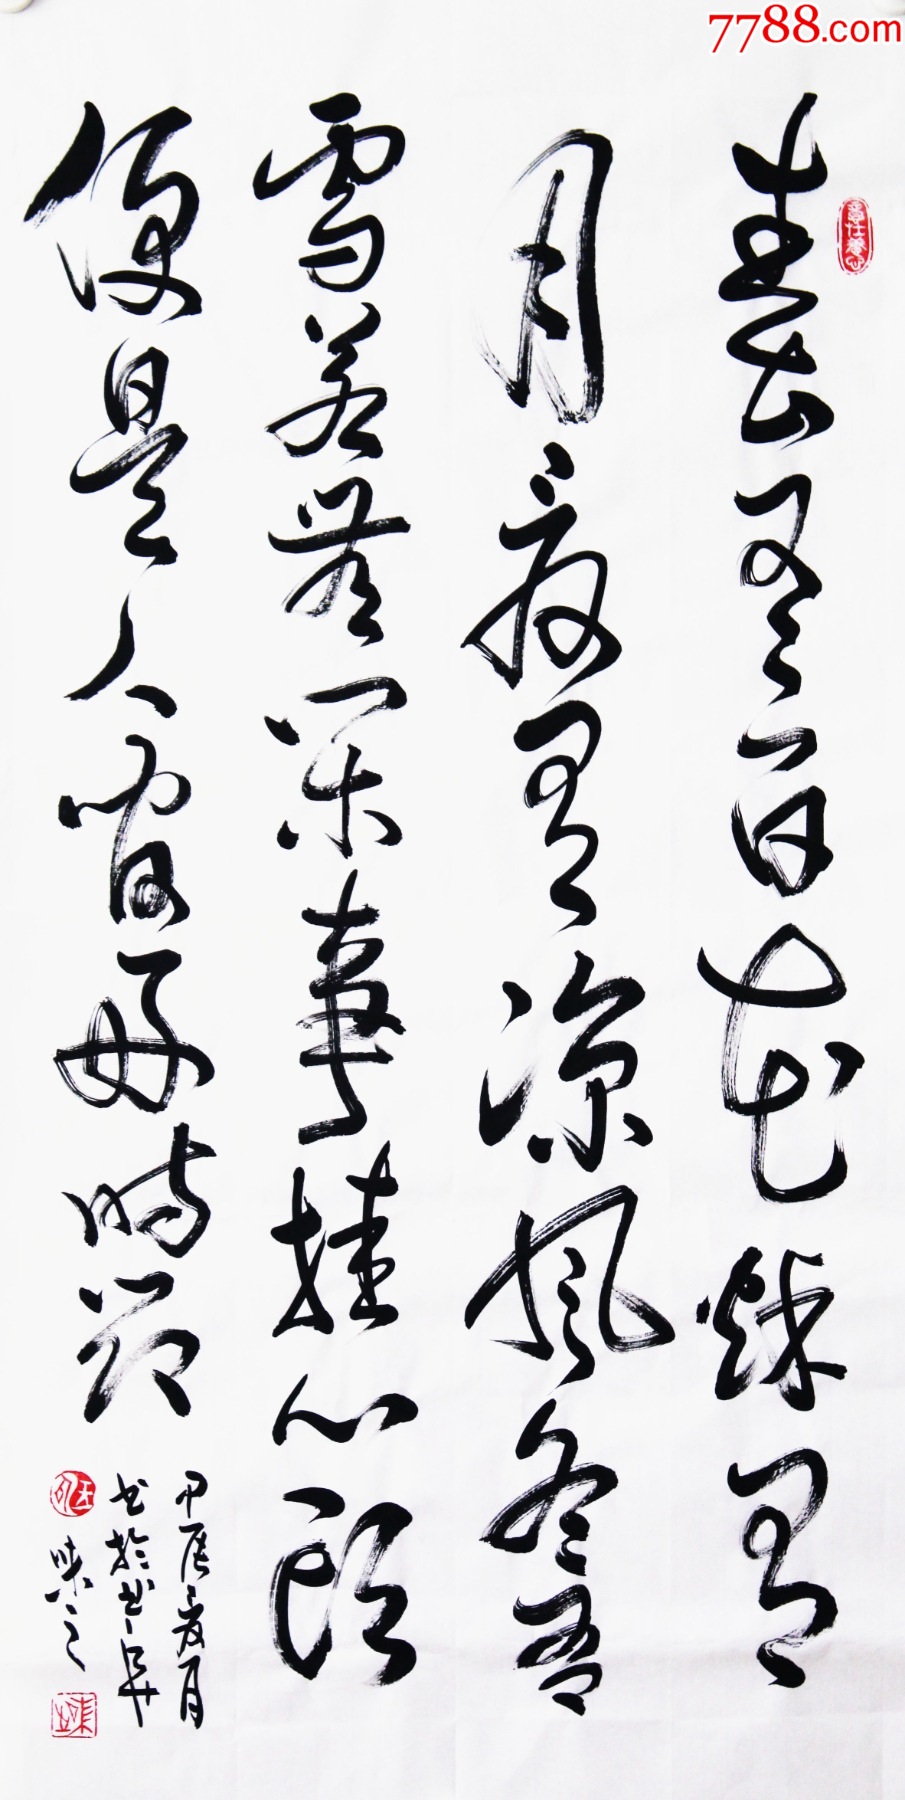 7788.com
春有百花秋有
月夏有凉风冬有
雪若無閑事挂心頭
便是人間好時節
甲辰夏月
书於
味之